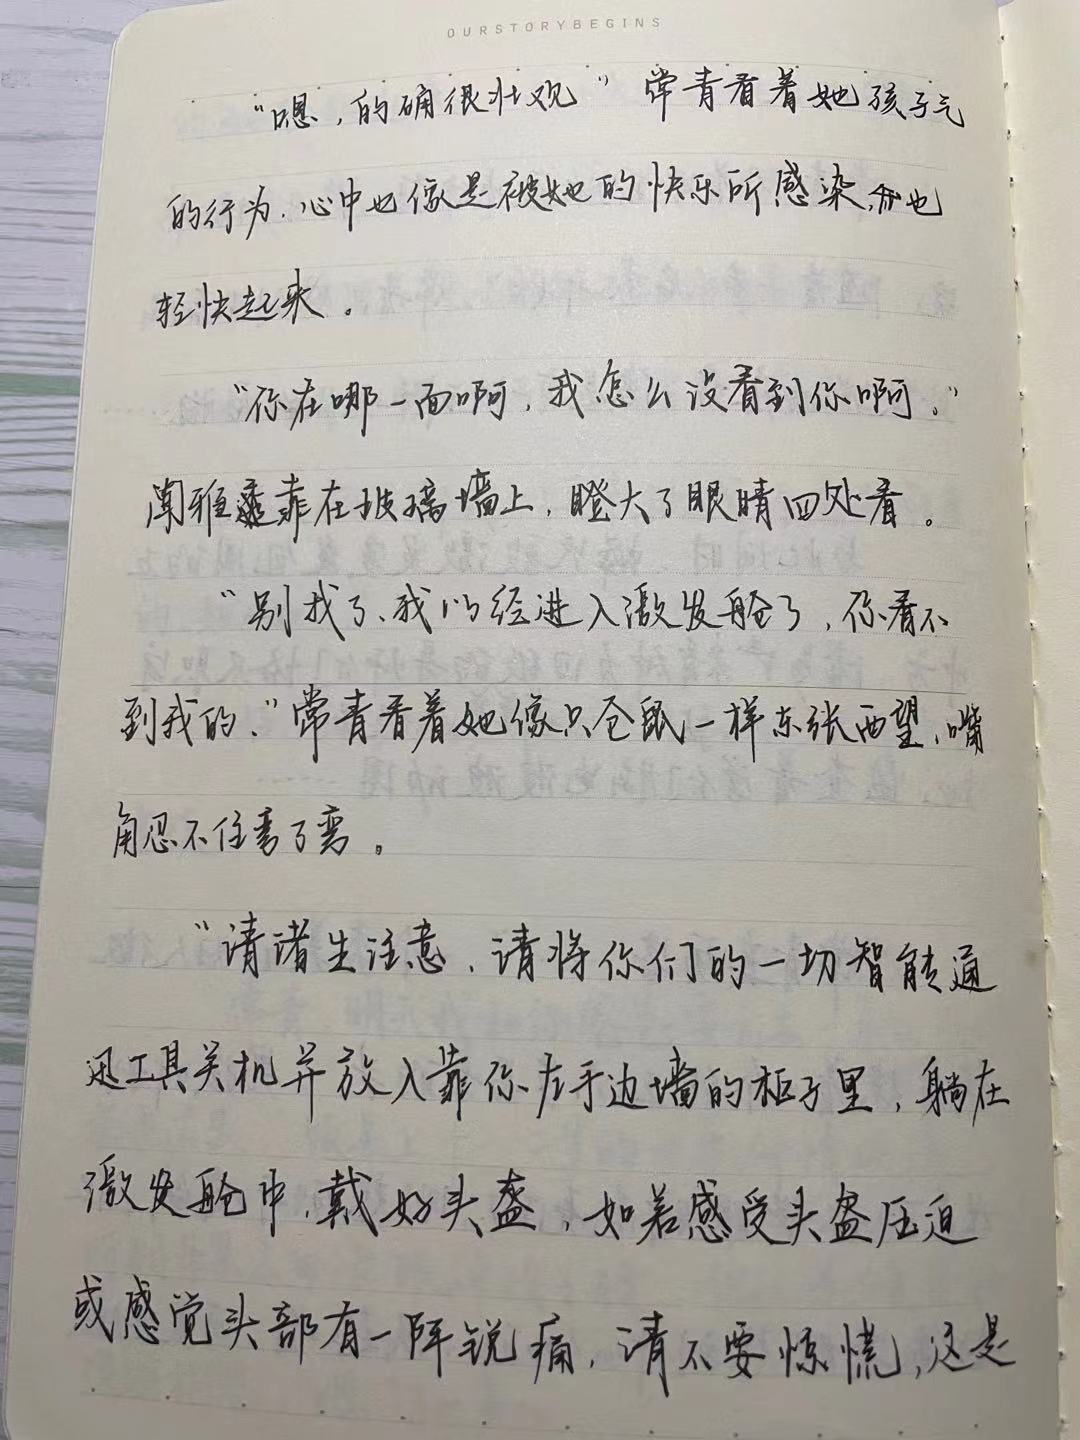 OURSTORYBEGINS
“嗯，的确很壮观”常青看着她孩子气
的行为，心中也像是被她的快乐所感染，也
轻快起来。
“你在哪一面啊，我怎么没看到你啊。”
闻雅靠在玻璃墙上，瞪大了眼睛四处看。
“别找了、我以经进入激发舱了，你看不
到我的、”常青看着她像只仓鼠一样东张西望、嘴
角忍不住弯了弯。
“请诸生注意、请将你们的一切智能通
迅工具关机并放入靠你左手边墙的柜子里，躺在
激发舱中，戴好头盔，如若感受头盔压迫
或感觉头部有一阵锐痛，请不要惊慌，这是